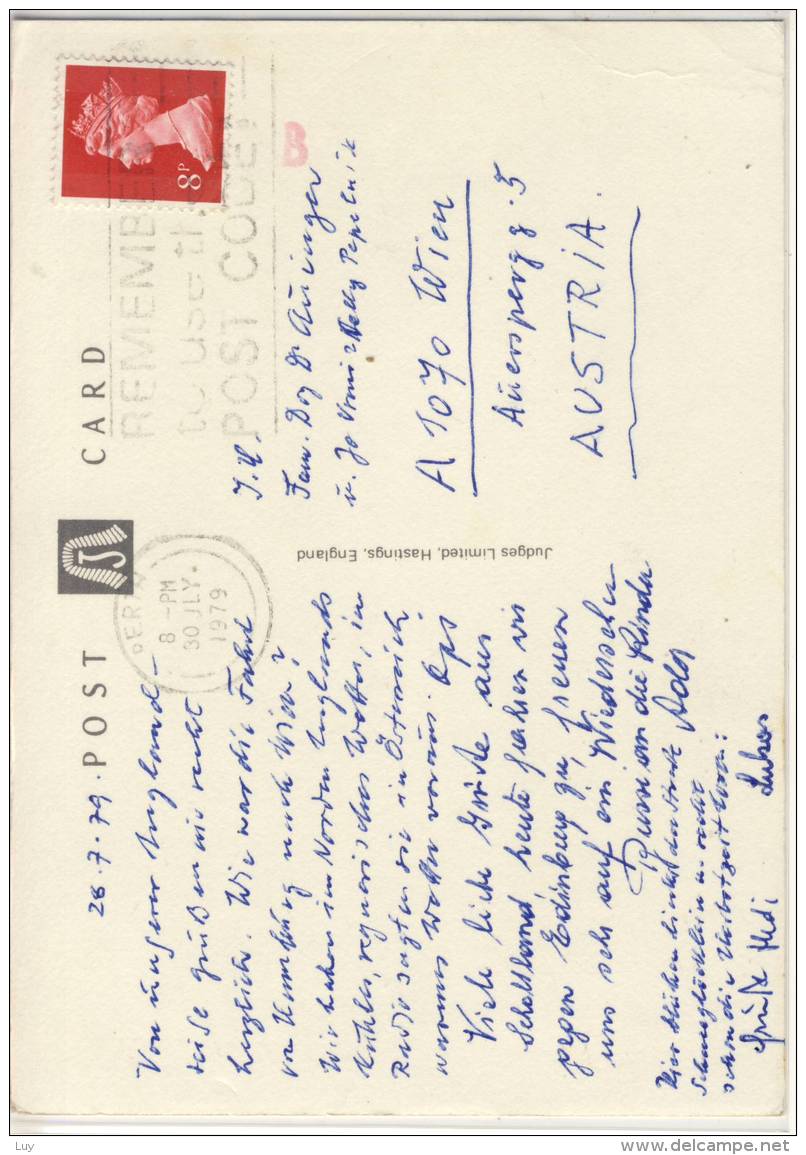 POST CARD
28.7.79.
Von unserer England-
reise grüßen wir recht
herzlichst. Wie war die Fahrt
von nach Wien?
Wir haben im Norden Englands
kühles, regnerisches Wetter, im
Radio sagten sie in Österreich
warmes Wetter voraus. Opi
Viele liebe Grüße aus
Schottland heute fahren wir
gegen Edinburg zu, freuen
uns sehr auf ein Wiedersehen
Bussi an die Kinder
Hier blühen
Schneeglöcklein u. recht
schon die
Grüße Hedi
PERTH
8 - PM
30 JLY
1979
REMEMBER
to use the
POST CODE!
8P
B
Judges Limited, Hastings, England
Fam. Doz Dr Auinger
A 1070 Wien
Auerspergg. 5
AUSTRIA.
Luy
www.delcampe.net